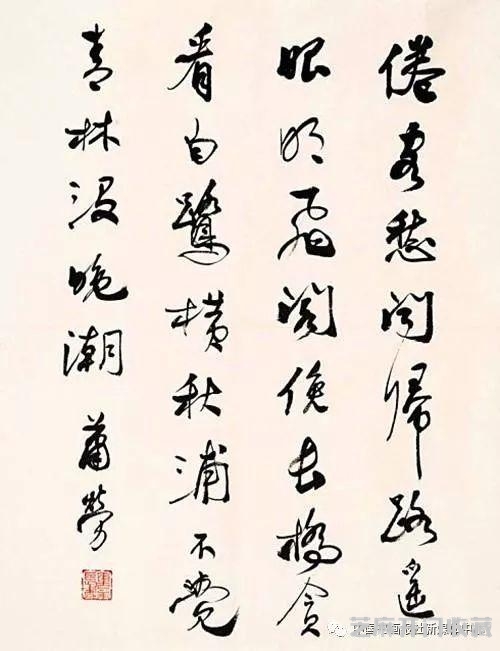 倦客愁闻归路遥
眼明飞阁俯长桥贪
看白鹭横秋浦不觉
青林没晚潮 萧劳